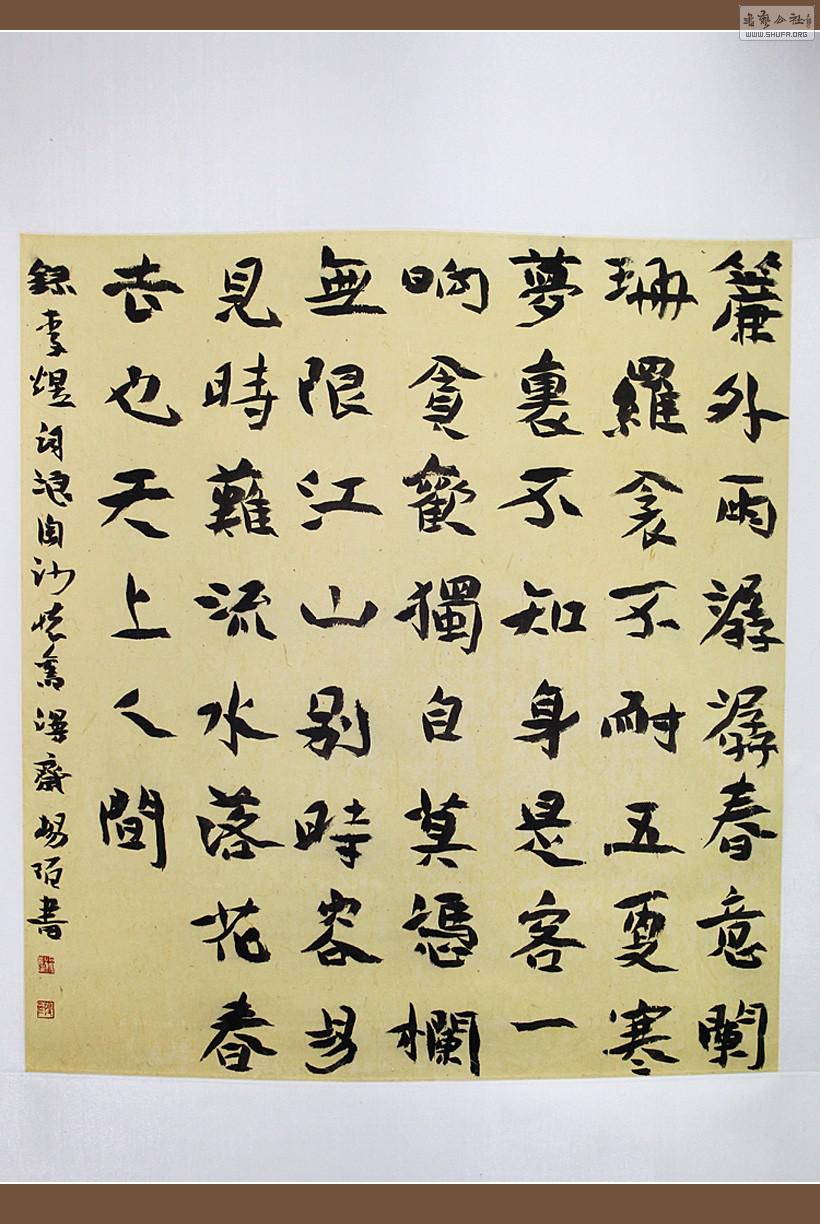 簾外雨潺潺春意闌
珊羅衾不耐五更寒
夢裏不知身是客一
晌貪歡獨自莫憑欄
無限江山別時容易
見時難流水落花春
去也天上人間
錄李煜詞浪淘沙懷舊漫齋易陌書
书艺公社
WWW.SHUFA.ORG